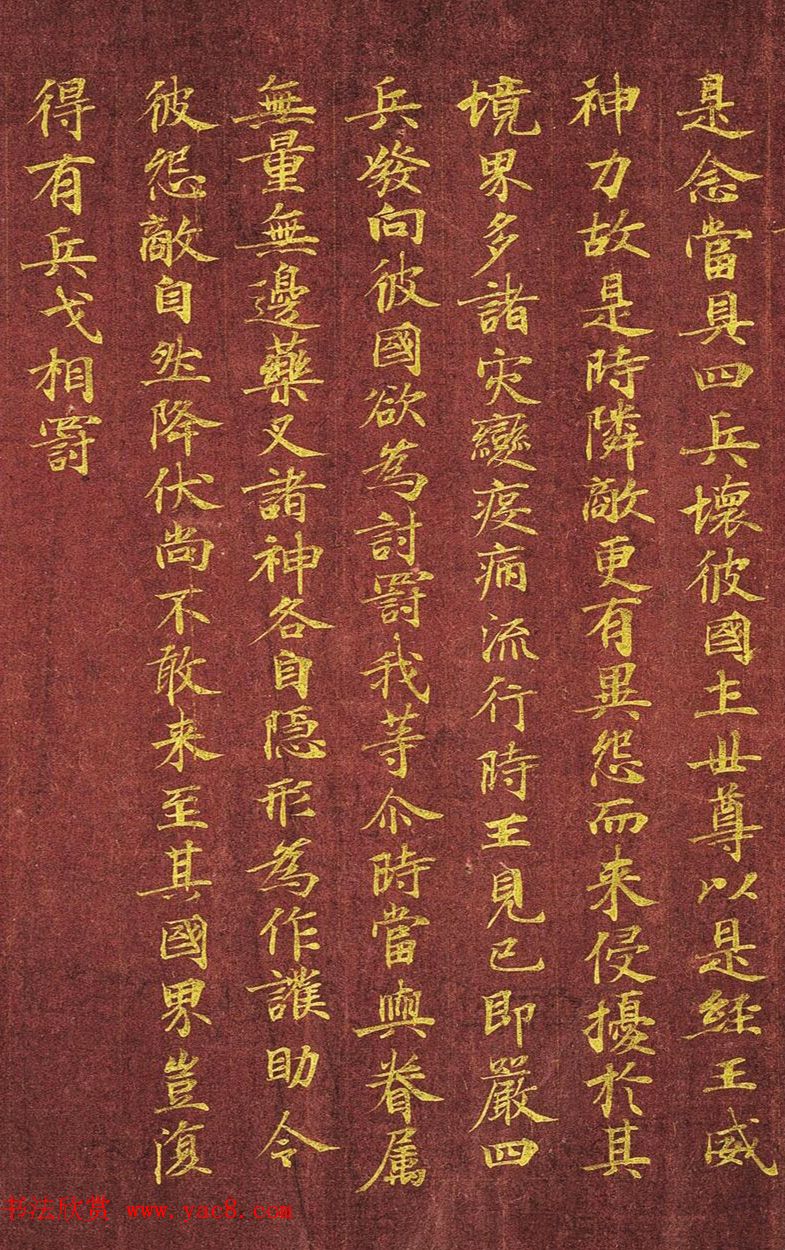 是念當具四兵壞彼國土世尊以是經王威
神力故是時隣敵更有異怨而来侵擾於其
境界多諸灾變疫病流行時王見已即嚴四
兵發向彼國欲為討罰我等尒時當與眷属
無量無邊藥叉諸神各自隱形為作護助令
彼怨敵自然降伏尚不敢来至其國界豈復
得有兵戈相罰
书法欣赏 www.yac8.com